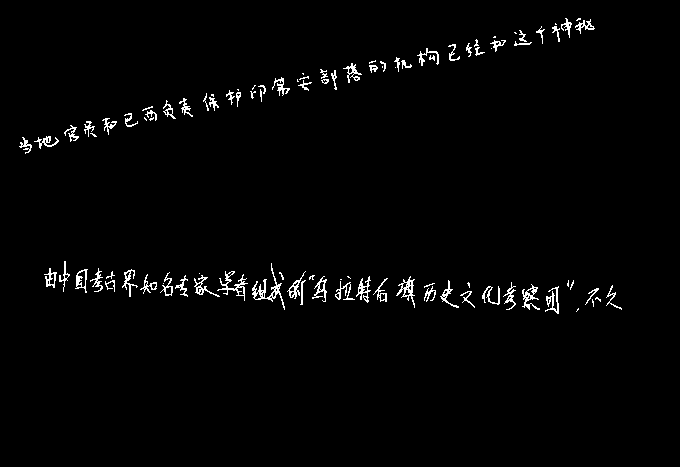 当地官员和巴西负责保护印第安部落的机构已经和这个神秘
由中国考古界知名专家学者组成的“乌拉特后旗历史文化考察团”，不久